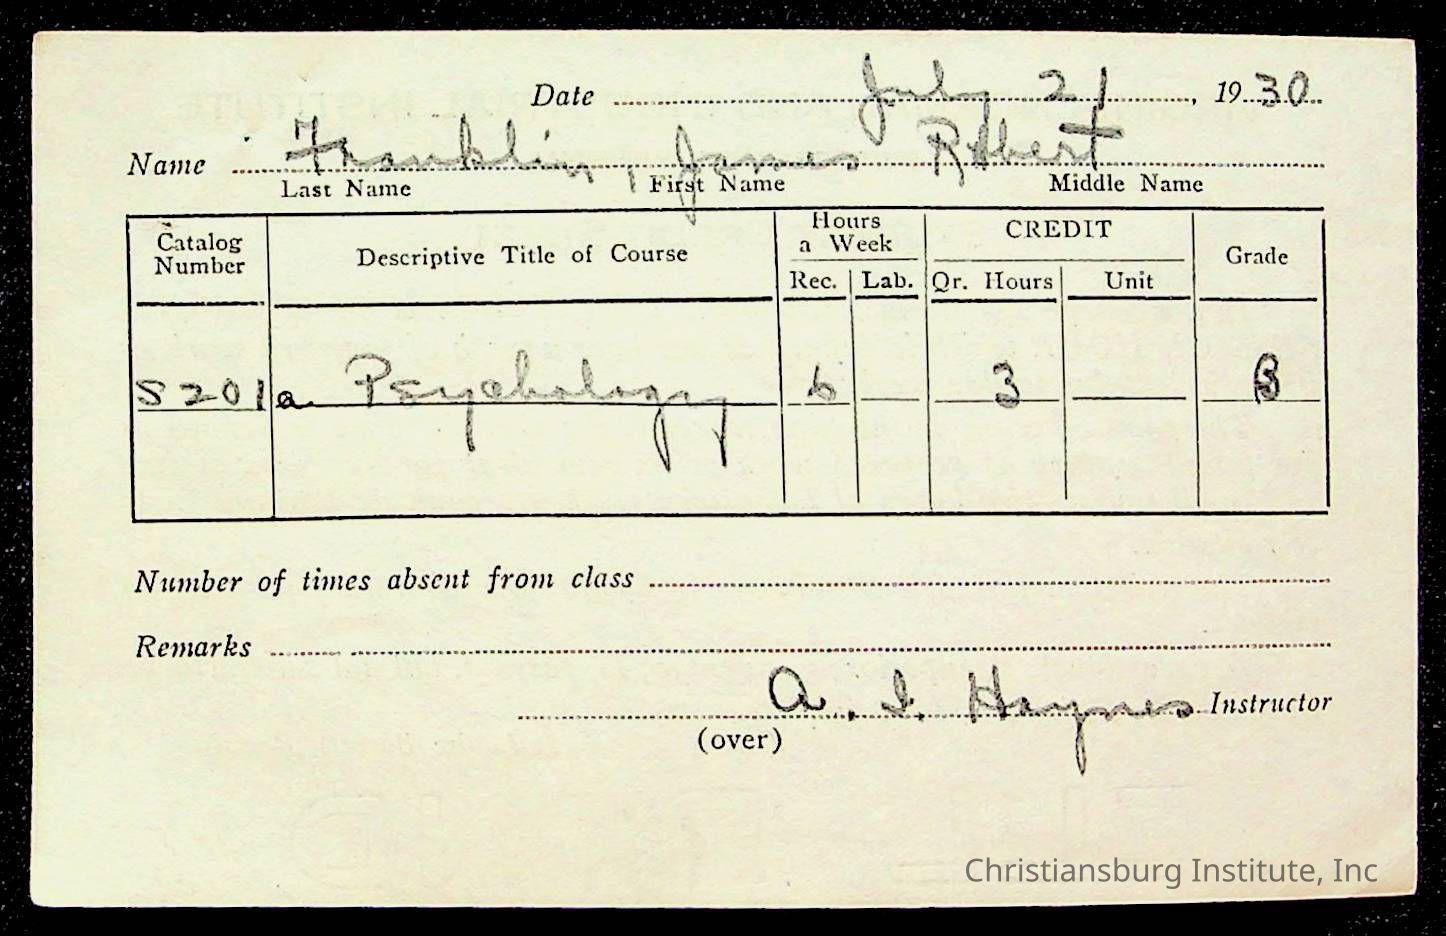 Date July 21, 1930
Name Franklin, James Robert
Last Name First Name Middle Name
Catalog Number Descriptive Title of Course Hours a Week CREDIT Grade
Rec. Lab. Qr. Hours Unit
S201a Psychology 6 3 B
Number of times absent from class
Remarks
A. I. Haynes Instructor
(over)
Christiansburg Institute, Inc